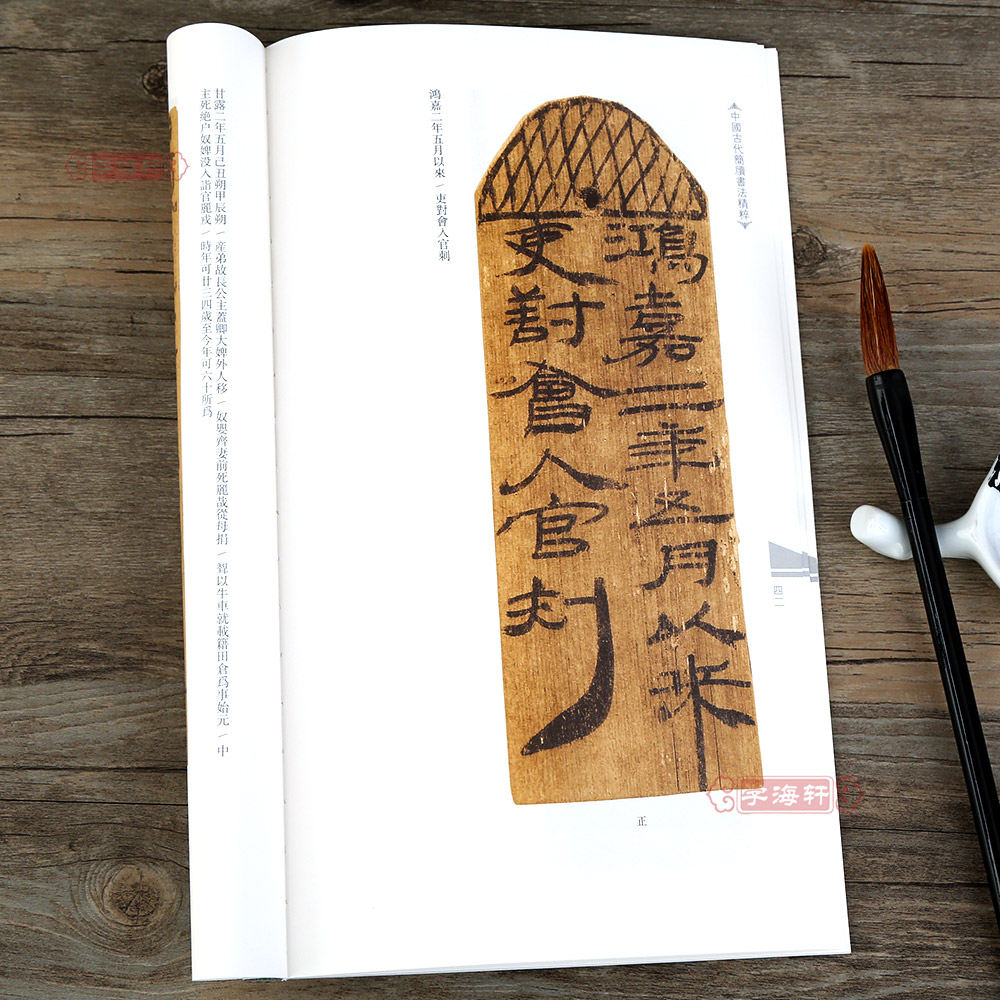 中國古代簡牘書法精粹
鴻嘉二年五月以來
吏對會入官刺
四二
正
鴻嘉二年五月以來／吏對會入官刺
甘露二年五月己丑朔甲辰朔／産弟故長公主蓋卿大婢外人移／奴嬰齊妻前死麗哉從母捐／㝛以牛車就載籍田倉爲事始元／中
主死绝户奴婢没入詣官麗戎／時年可廿三四歲至今年可六十所爲
学海轩
学海轩